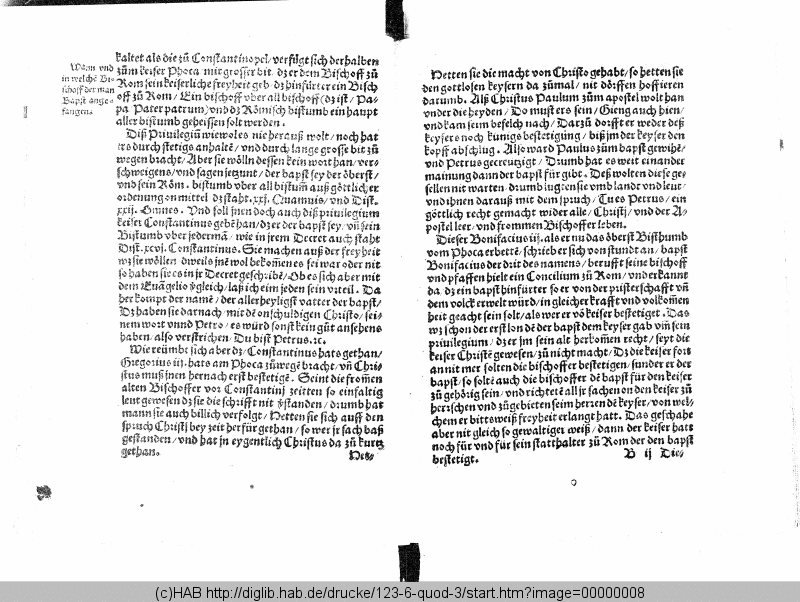 Wann vnd
in welchē Bi-
schoff der man
Bapst ange-
fangen.
kaltet als die zū Constantinopel/ verfügt sich derhalben
zūm keiser Phoca mit grosser bit dz er dem Bischoff zū
Rom sein keiserliche freyheit geb dz hinfürter ein Bisch
off zū Rom/ Ein bischoff vber all bischoff (dz ist/ Pa-
pa Pater patrum) vnd dz Römisch bistumb ein haupt
aller bistumb geheissen solt werden.
Diß Priuilegiū wiewol es nie herauß wolt/ noch hat
irs durch stetigs anhaltē/ vnd durch lange grosse bit zū
wegen bracht/ Aber sie wölln dessen kein wort han/ ver-
schweigens/ vnd sagen ietzunt/ der bapst sey der öberst/
vnd sein Röm. bistumb vber all bistum̄ auß göttlicher
ordenung on mittel dz staht .xxj. Quamuis/ vnd Dist.
xxij. Omnes. Vnd soll jnen doch auch diß priuilegium
keiser Constantinus gebē han/ dz er der bapst sey/ vn̄ sein
Bistumb vber jedermā/ wie in jrem Decret auch staht
Dist. xcvj. Constantinus. Sie machen auß der freyheit
wz sie wöllen dweils jnē wol bekom̄en es sei war oder nit
so haben sie es in jr Decret geschribē/ Ob es sich aber mit
dem Euāgelio ȳgleich/ laß ich eim jeden sein vrteil. Da
her kompt der namē/ der allerheyligst vatter der bapst/
Dz haben sie darnach/ mit dē onschuldigen Christo/ sei-
nem wort vnnd Petro/ es würd sonst kein gūt ansehens
haben/ also verstrichen/ Du bist Petrus. ꝛc.
Wie reümbt sich aber dz/ Constantinus hats gethan/
Gregorius iij. hats am Phoca zūwegē bracht/ vn̄ Chri-
stus muß jnen hernach erst bestetigē. Seint die from̄en
alten Bischoffer vor Constantinj zeitten so einfaltig
leut gewesen dz sie die schrifft nit ȳstanden/ drumb hat
mann sie auch billich verfolgt/ Hetten sie sich auff den
spruch Christj bey zeit herfür gethan/ so wer jr sach baß
gestanden/ vnd hat in eygentlich Christus da zū kurtz
gethan.
Het-
Hetten sie die macht von Christo gehabt/ so hetten sie
den gottlosen keysern da zūmal/ nit dörffen hoffieren
darumb. Alß Christus Paulum zūm apostel wolt han
vnder die heyden/ Do must ers sein/ Gieng auch hien/
vnd kam seim befelch nach/ Darzū dorfft er weder deß
keysers noch künigs bestetigung/ biß jm der keyser den
kopff abschlug. Also ward Paulus zūm bapst gewihē/
vnd Petrus gecreutzigt/ Drumb hat es weit einander
mainung dann der bapst für gibt. Deß wolten die se ge-
sellen nit warten/ drumb jugten sie vmb landt vnd leut/
vnd ihnen darauß mit dem spruch/ Tu es Petrus/ ein
göttlich recht gemacht wider alle/ Christj/ vnd der A-
postel leer/ vnd frommen Bischoffer leben.
Dieser Bonifacius iij. als er nu das öberst Bisthumb
vom Phoca erbettē/ schrieb er sich von stundt an/ bapst
Bonifacius der drit des namens/ berufft seine bischoff
vnd pfaffen hielt ein Concilium zū Rom/ vnd erkannt
da dz ein bapst hinfürter so er von der priesterschafft vn̄
dem volck erwelt würd/ in gleicher krafft vnd volkom̄en
heit geacht sein solt/ als wer er vō keiser bestetiget. Das
wz schon der erst lon dē der bapst dem keyser gab vm̄ sein
priuilegium/ dz er jm sein alt herkom̄en recht/ seyt die
keiser Christē gewesen/ zū nicht macht/ Dz die keiser fort
an nit mer solten die bischoffer bestetigen/ sunder er der
bapst/ so soltē auch die bischoffer dē bapst für den keiser
zū gehörig sein/ vnd richtetē all jr sachen on den keiser zū
herrschen vnd zū gebieten sein herren dē keyser/ von wel-
chem er bittsweiß freyheit erlangt hatt. Das geschahe
aber nit gleich so gewaltiger weiß/ dann der keiser hatt
noch für vnd für sein statthalter zū Rom der den bapst
bestetigt.
B ij Die-
(c)HAB http://diglib.hab.de/drucke/123-6-quod-3/start.htm?image=00000008